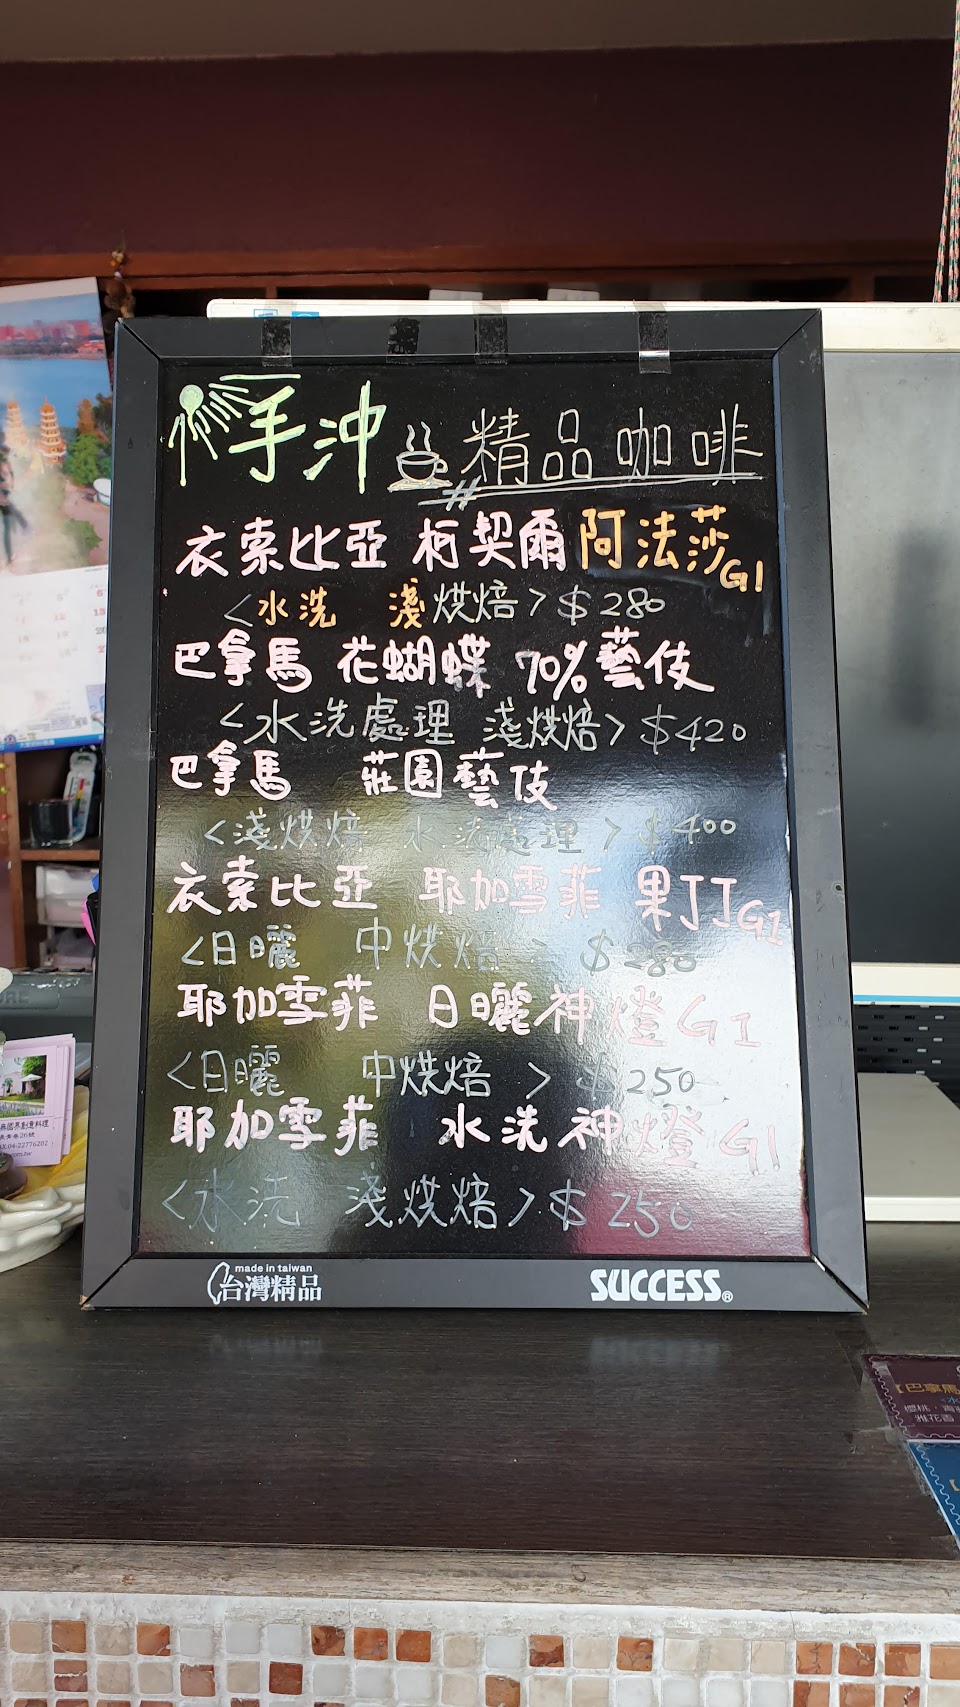 手沖 精品咖啡
衣索比亞 柯契爾 阿法莎G1
<水洗 淺烘焙> $280
巴拿馬 花蝴蝶 70%藝伎
<水洗處理 淺烘焙> $420
巴拿馬 莊園藝伎
<淺烘焙 水洗處理> $400
衣索比亞 耶加雪菲 果丁丁G1
<日曬 中烘焙> $280
耶加雪菲 日曬神燈G1
<日曬 中烘焙> $250
耶加雪菲 水洗神燈G1
<水洗 淺烘焙> $250
made in taiwan
台灣精品
SUCCESS®